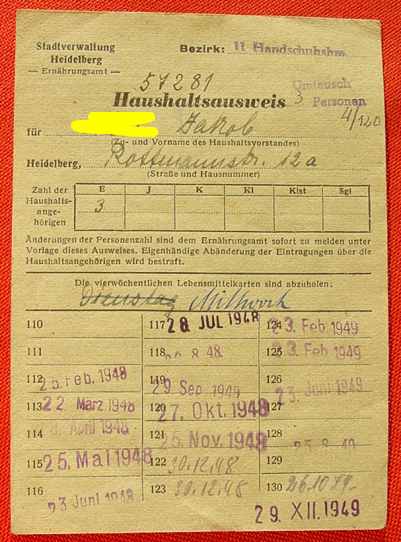 Stadtverwaltung
Heidelberg
— Ernährungsamt —
Bezirk: II Handschuhshm.
57281
Umtausch
Haushaltsausweis 3 Personen
4/120
für Jakob
(Zu- und Vorname des Haushaltsvorstandes)
Heidelberg, Rottmannstr. 12a
(Straße und Hausnummer)
Zahl der Haushaltsange-hörigen
E J K Kl Klst Sgl
3
Änderungen der Personenzahl sind dem Ernährungsamt sofort zu melden unter
Vorlage dieses Ausweises. Eigenhändige Abänderung der Eintragungen über die
Haushaltsangehörigen wird bestraft.
Die vierwöchentlichen Lebensmittelkarten sind abzuholen:
Dienstag Mittwoch
110 117 28 JUL 1948 124 23. Feb 1949
111 118 8 48 125 Feb 1949
112 25 Feb. 1948 119 29 Sep 1948 126 Juni 1949
113 22 März 1948 120 27. Okt. 1948 127
114 April 1948 121 Nov. 1948 128 8 49
115 25. Mai 1948 122 30.12.48 129
116 23 Juni 1948 123 30.12.48 130 26.10.49.
29. XII. 1949